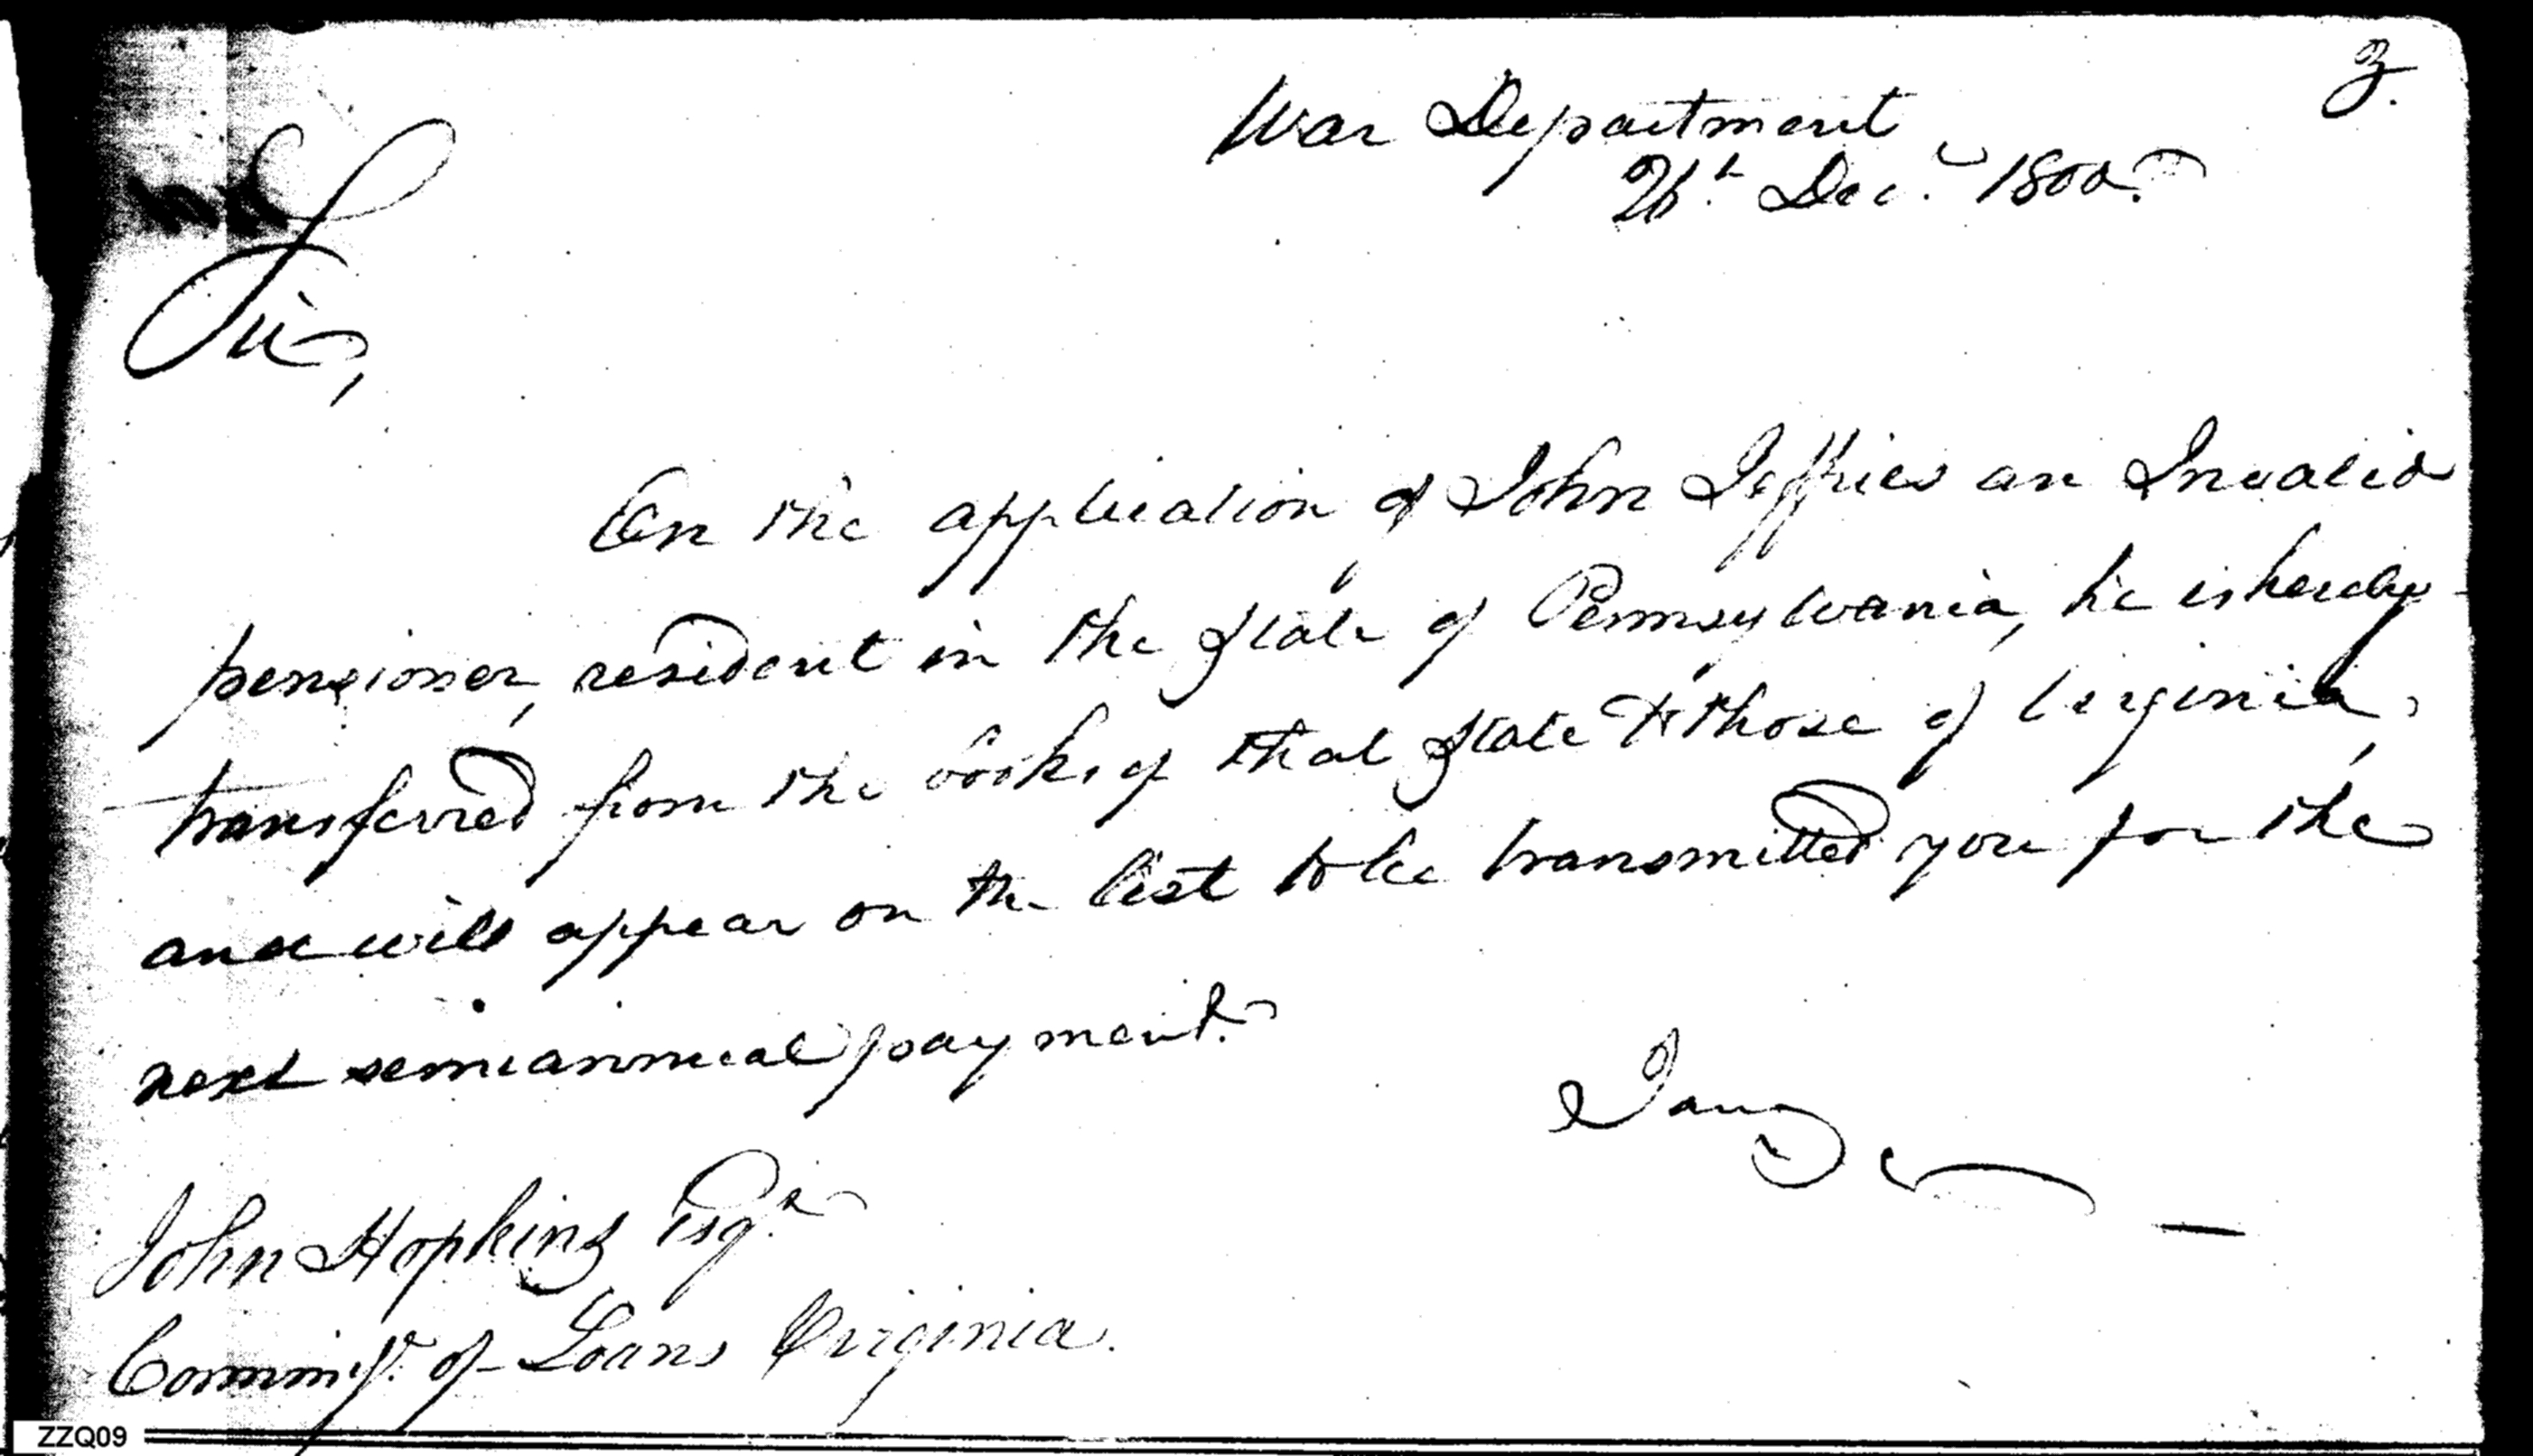 3.
War Department
26t. Decr. 1800.
Sir,
On the application of John Jeffries an Invalid
pensioner, resident in the State of Pennsylvania, he is hereby
transferred from the books of that State to those of Virginia,
and will appear on the list to be transmitted you for the
next semiannual payment.
I am &c
John Hopkins Esqr.
Commisr. of Loans Virginia.
ZZQ09